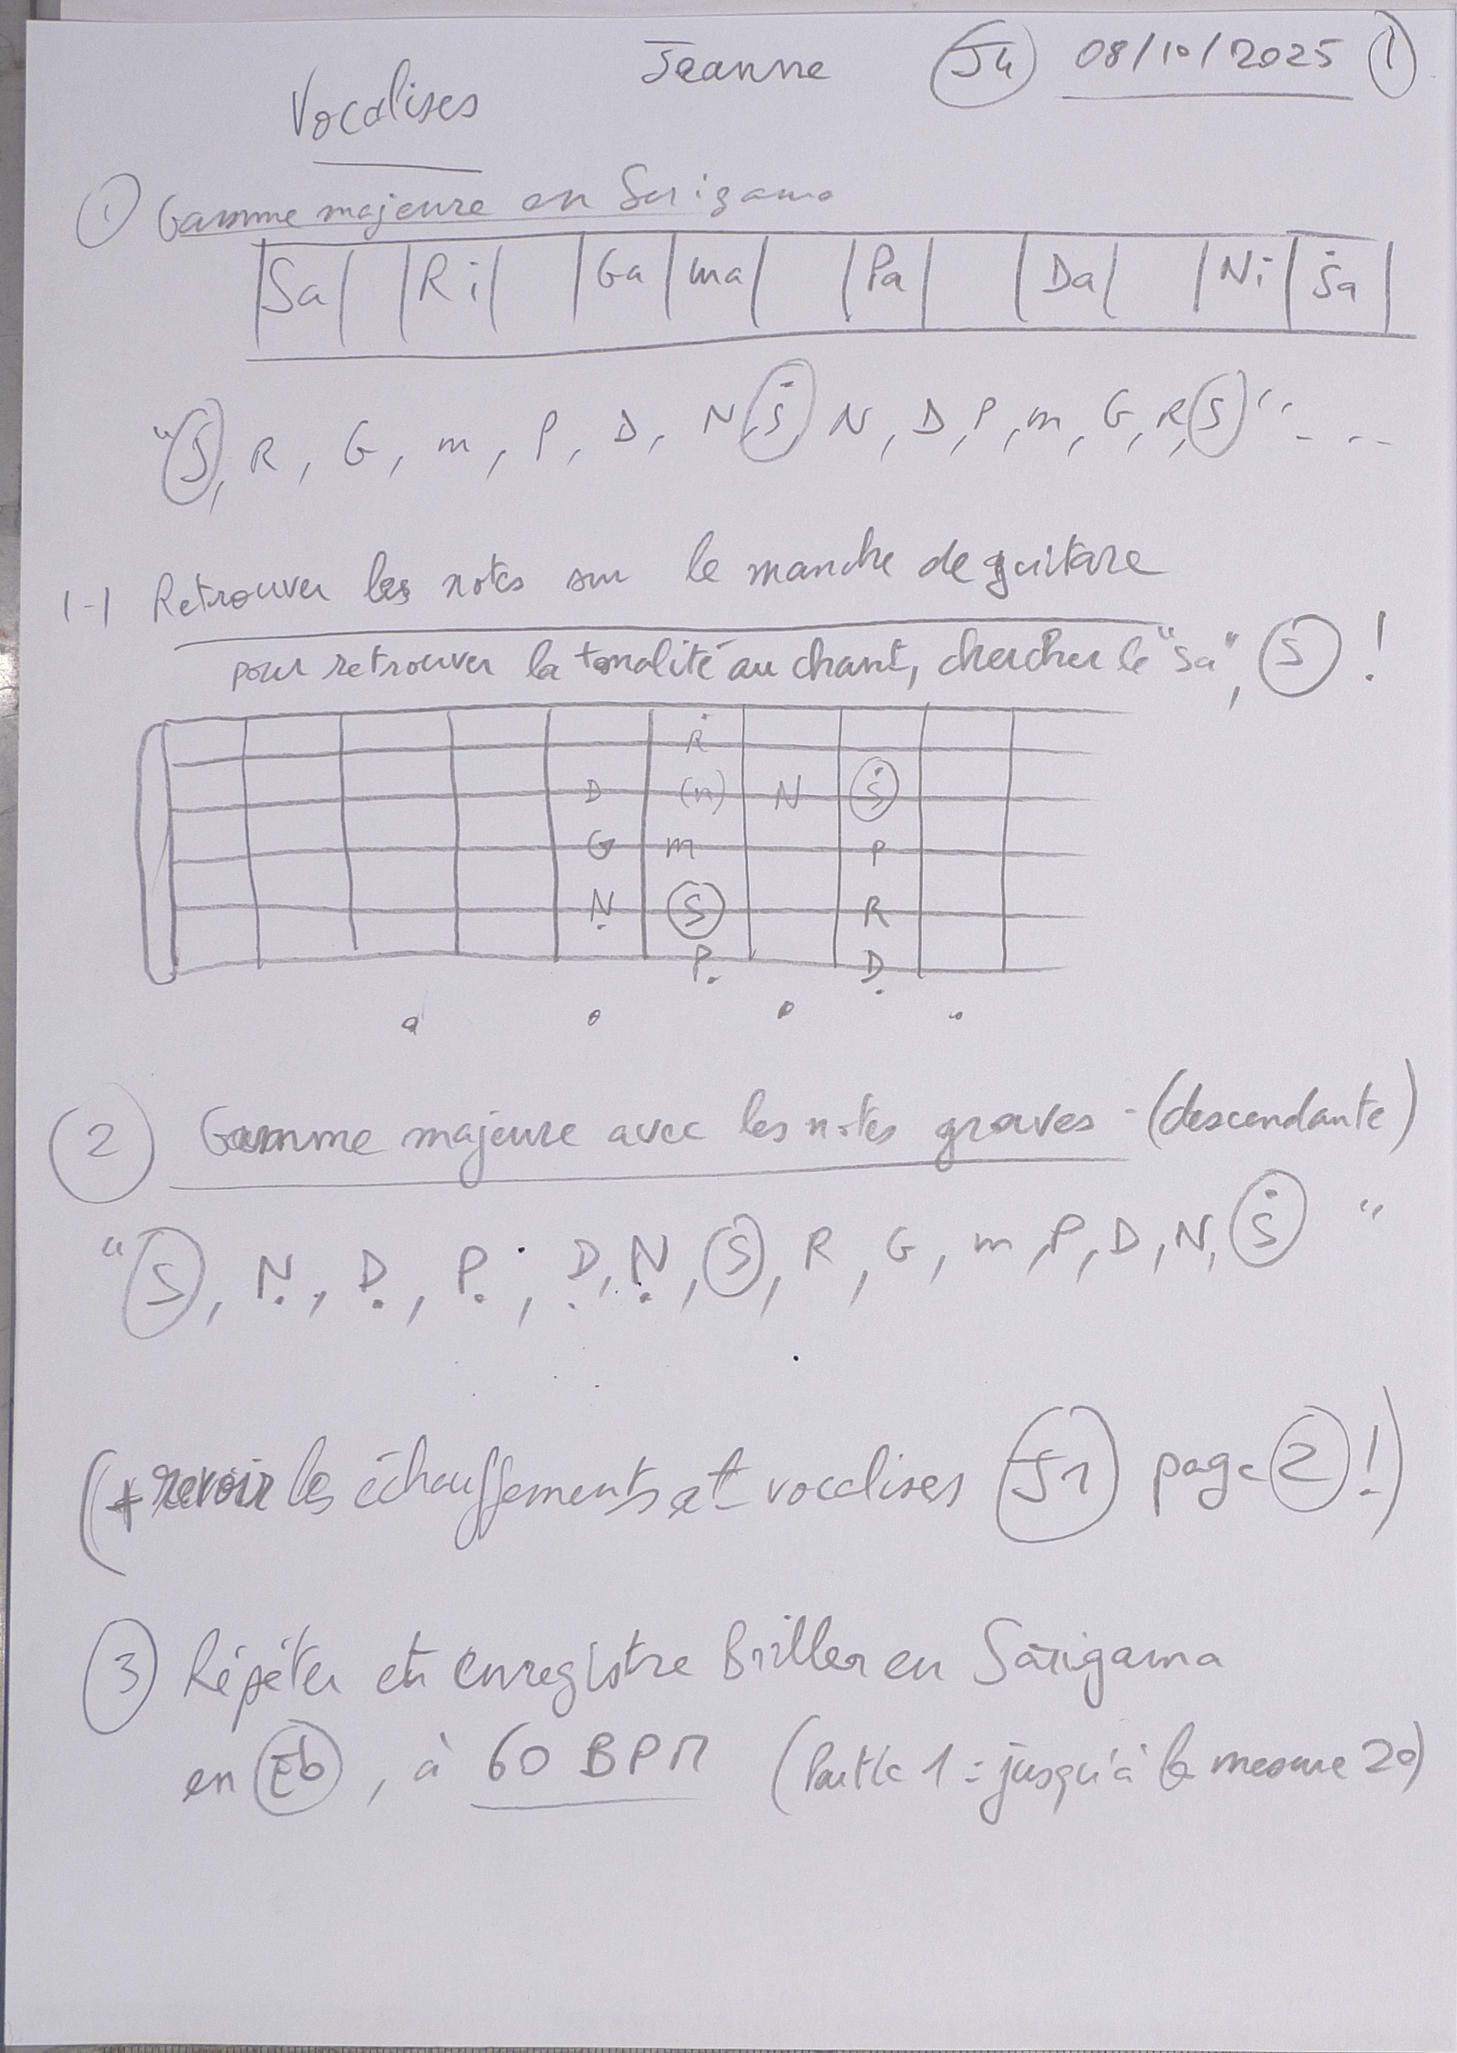 Jeanne J4 08/10/2025 1
Vocalises
1 Gamme majeure en Sarigama
Sa Ri Ga ma Pa Da Ni Ṡa
"S, R, G, m, P, D, N, Ṡ, N, D, P, m, G, R, S" ...
1-1 Retrouver les notes sur le manche de guitare
pour retrouver la tonalité au chant, chercher le "Sa", S !
Ṙ
D (n) N Ṡ
G m P
Ṇ S R
P̣ Ḍ
2 Gamme majeure avec les notes graves - (descendante)
"S, Ṇ, Ḍ, P̣, Ḍ, Ṇ, S, R, G, m, P, D, N, Ṡ"
(+ revoir les échauffements et vocalises J1 page 2 !)
3 Répéter et enregistre Briller en Sarigama
en Eb, à 60 BPM (Partie 1 : jusqu'à la mesure 20)